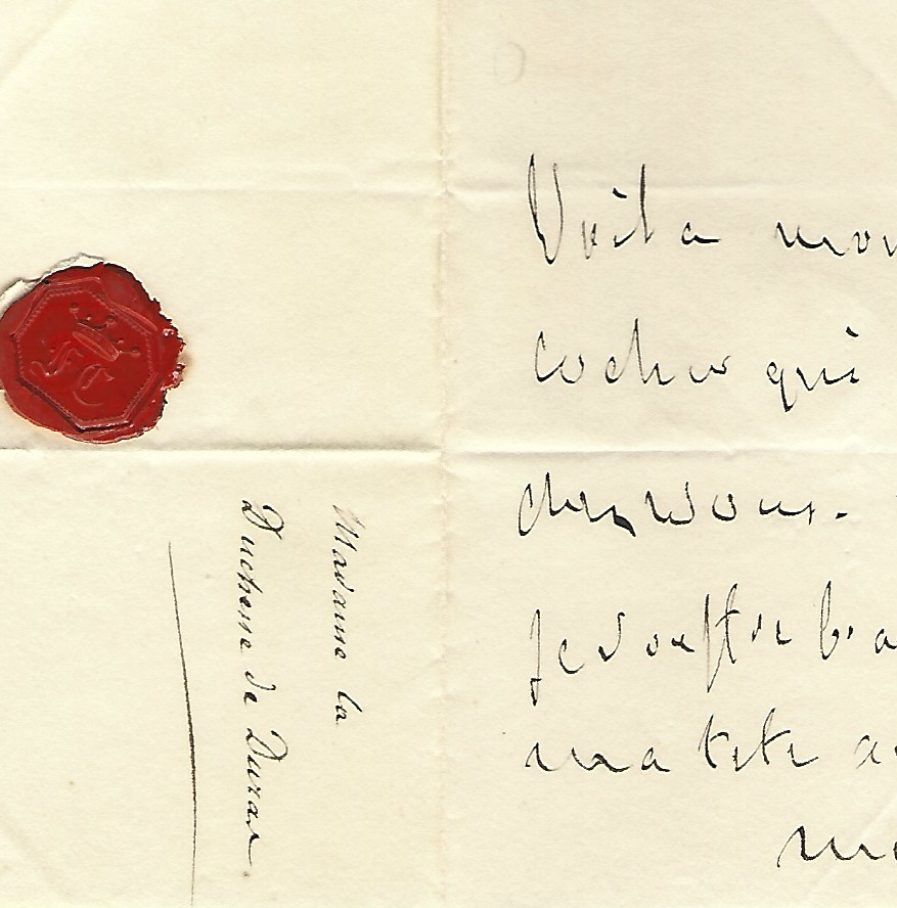 Madame la
Duchesse de Duras.
Voila mon
cocher qui
chez vous.
Je souffre
ma tete